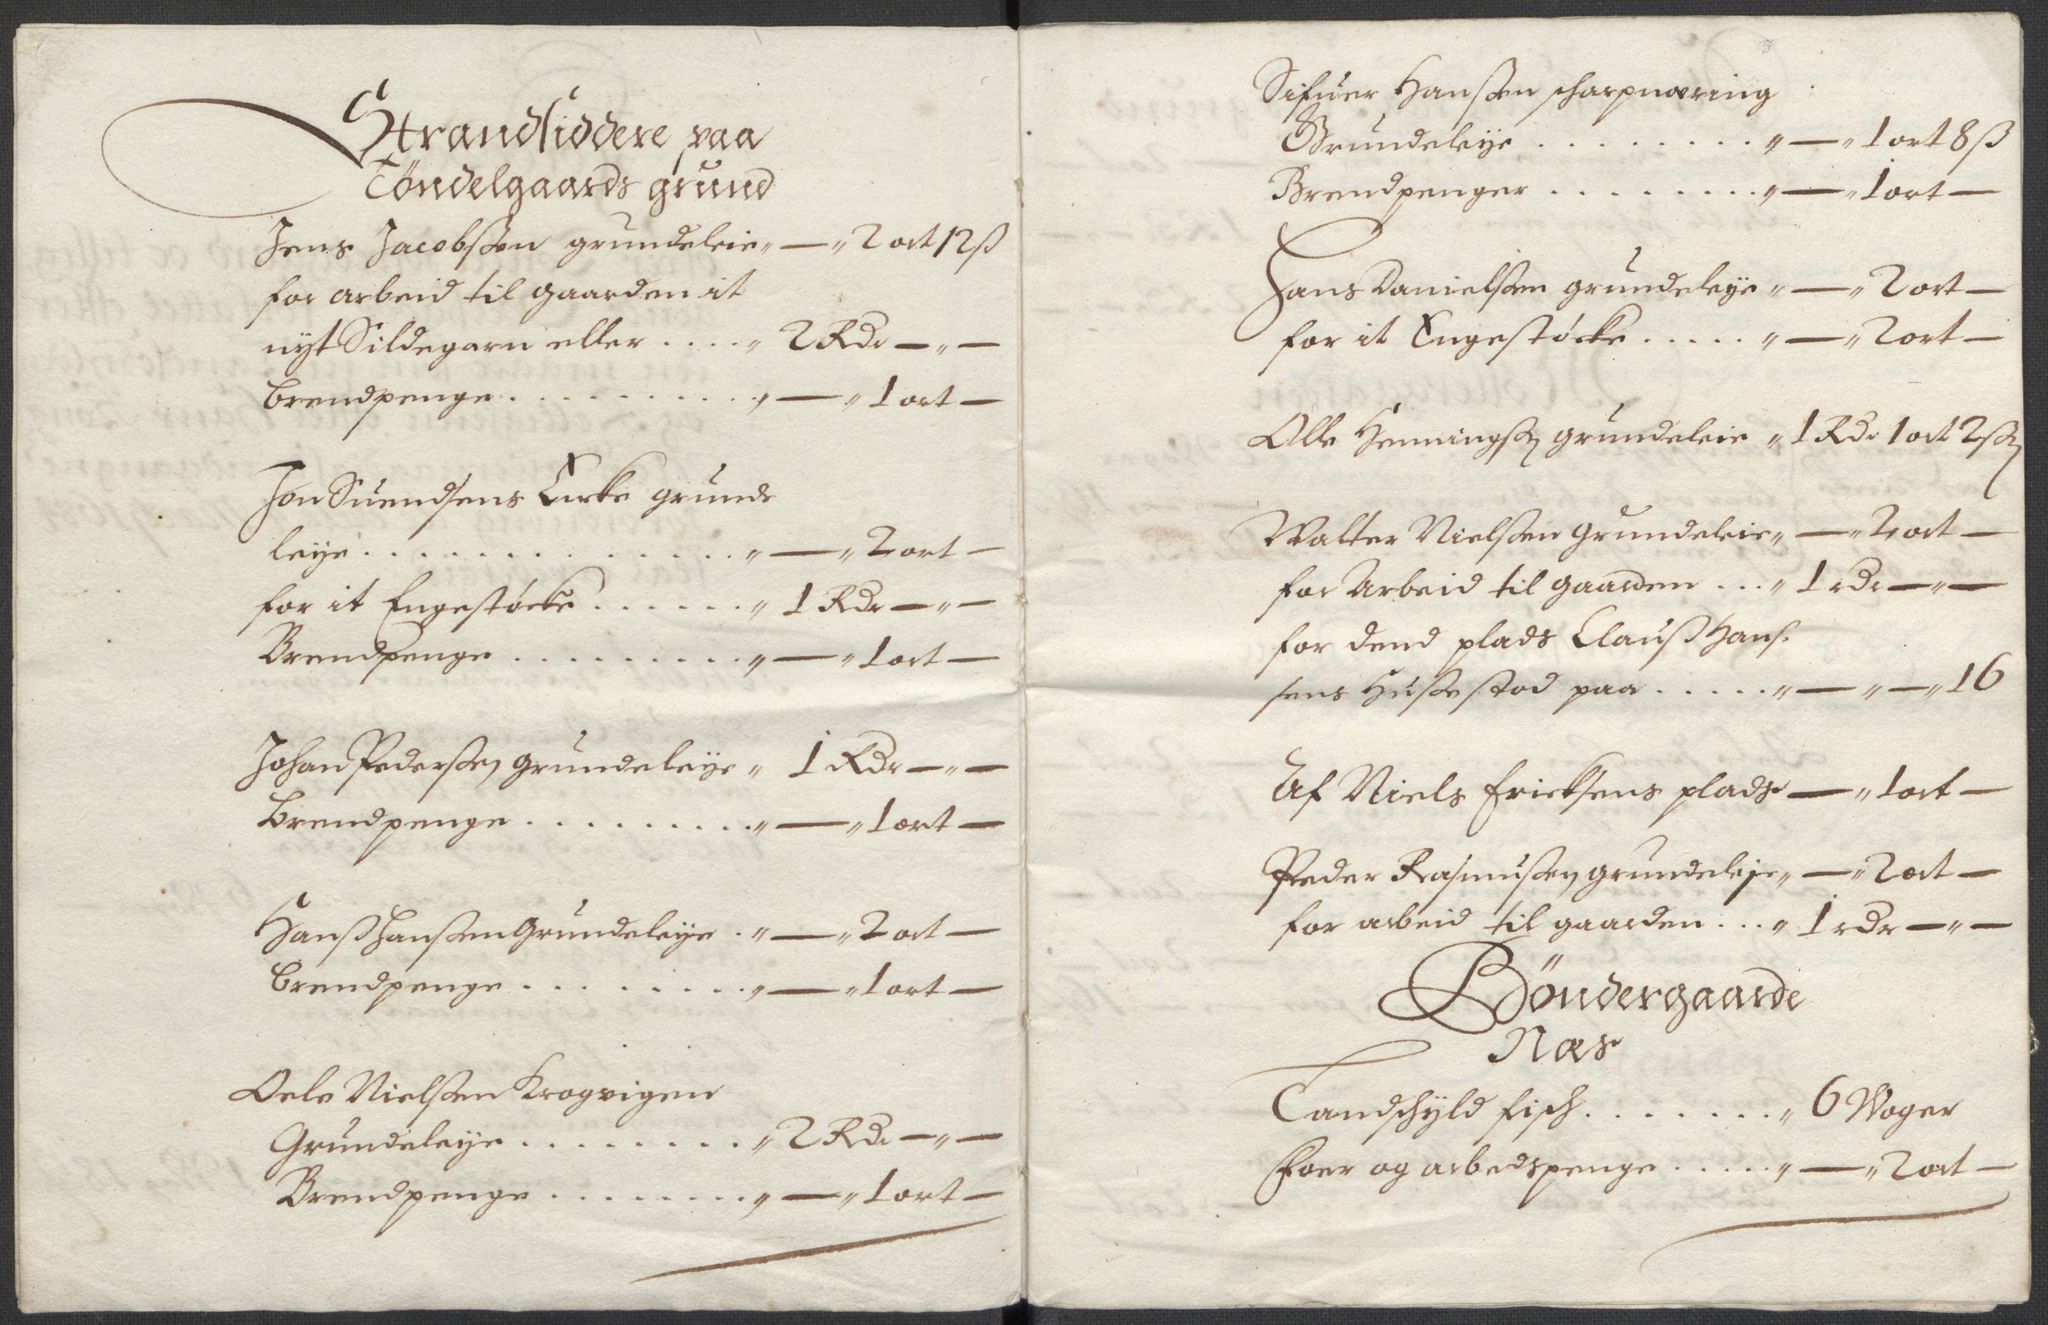 Strandsiddere paa
Töndelgaards grund
Jens Jacobßen grundeleie „ — „ 2 ort 12 ß
for arbeid til gaarden it
nyt Sildegarn eller .... „ 2 Rdr — „ —
brendpenge .......... „ — „ 1 ort —
Jon Suendsens Enke grunde
leye .............. „ — „ 2 ort —
for it Engestöcke ...... „ 1 Rdr — „ —
Brendpenge ......... „ — „ 1 ort —
Johan Pederßen grundeleye „ 1 Rdr — „ —
brendpenge .......... „ — „ 1 ort —
Hanß Hanßen Grundeleye . „ — „ 2 ort —
brendpenge ......... „ — „ 1 ort —
Oele Nielßen Krogvigen
Grundeleye ........ „ 2 Rdr — „ —
Brendpenge ......... „ — „ 1 ort —
Sifuer Hanßen scharpnæring
Grundeleye ......... „ — „ 1 ort 8 ß
Brendpenger ......... „ — „ 1 ort —
Hans Danielßen grundeleye „ — „ 2 ort —
for it Engestöcke ..... „ — „ 2 ort —
Olle Henningßen grundeleie „ 1 Rdr 1 ort 2 ß
Walter Nielßen Grundeleie „ — „ 2 ort —
for Arbeid til gaarden ... „ 1 rdr — „ —
for dend plads Clauß Hans-
sens Huße stod paa ..... „ — „ — „ 16
Af Niels Ericksens plads — „ 1 ort —
Peder Rasmußen grundeleje „ — „ 2 ort —
for arbeid til gaarden ... „ 1 rdr — „ —
Böndergaarde
Næs
Landschyld fisch ....... „ 6 Woger
Foer og arbedspenge ..... „ — „ 2 ort —